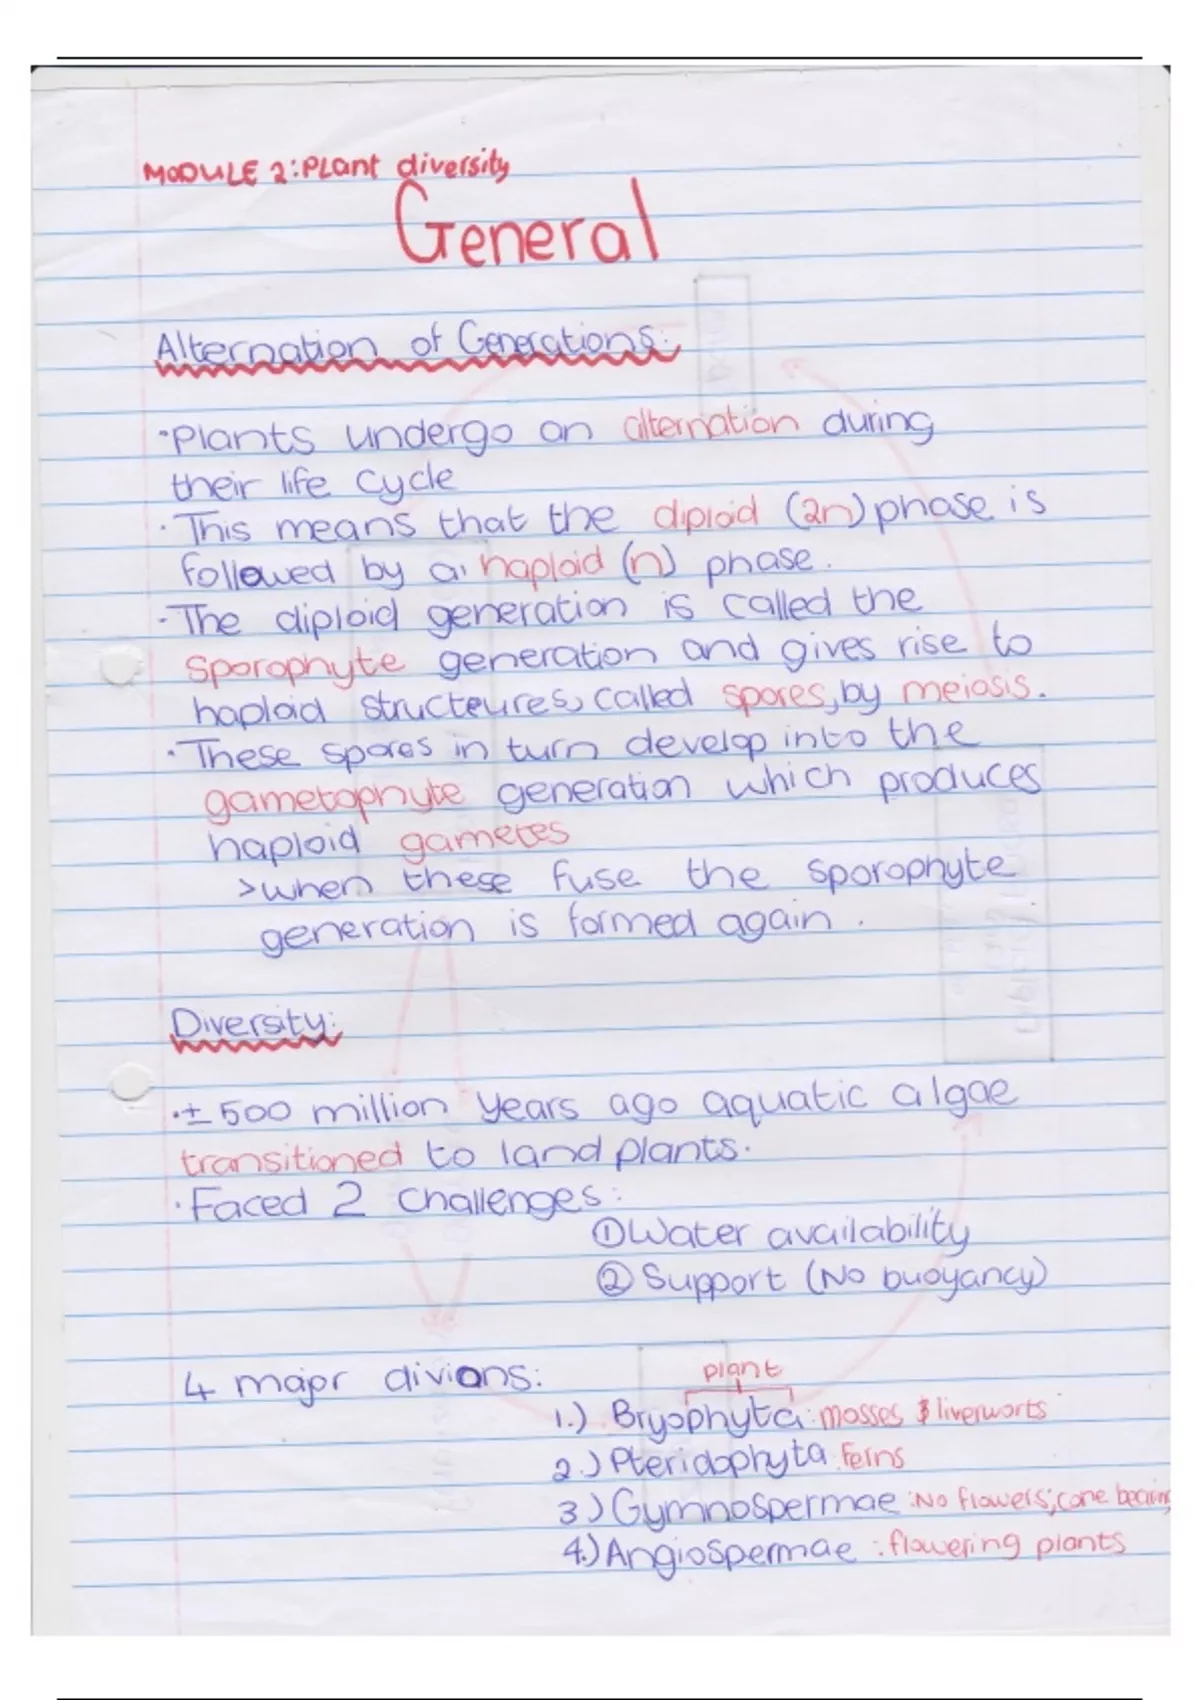 MODULE 2: Plant diversity
General
Alternation of Generations:
·Plants undergo an alternation during
their life cycle
·This means that the diploid (2n) phase is
followed by a haploid (n) phase.
·The diploid generation is called the
sporophyte generation and gives rise to
haploid structeures, called spores, by meiosis.
·These spores in turn develop into the
gametophyte generation which produces
haploid gametes
>when these fuse the sporophyte
generation is formed again.
Diversity:
·± 500 million years ago aquatic algae
transitioned to land plants.
·Faced 2 challenges:
① Water availability
② Support (No buoyancy)
plant
4 major divions:
1.) Bryophyta: mosses & liverworts
2.) Pteridophyta: ferns
3) Gymnospermae: No flowers; cone bearing
4.) Angiospermae: flowering plants